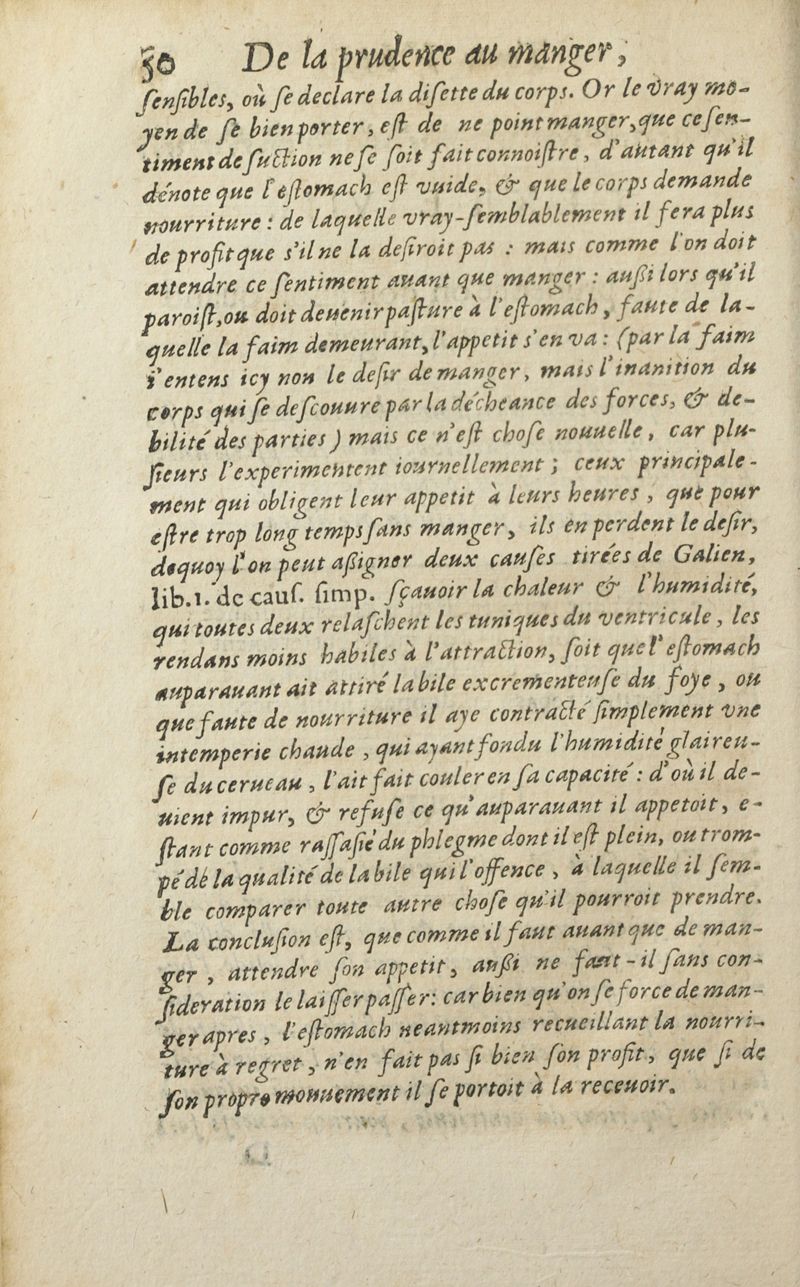 50 De la prudence au manger,
ſenſibles, où ſe declare la diſette du corps. Or le vray mo-
yen de ſe bien porter, eſt de ne point manger, que ce ſen-
timent de ſuction ne ſe ſoit fait connoiſtre, d'autant qu'il
dénote que l'eſtomach eſt vuide, & que le corps demande
nourriture : de laquelle vray-ſemblablement il ſera plus
de profit que s'il ne la deſiroit pas : mais comme l'on doit
attendre ce ſentiment auant que manger : auſsi lors qu'il
paroiſt, on doit deuenir paſture à l'eſtomach, faute de la-
quelle la faim demeurant, l'appetit s'en va : (par la faim
i'entens icy non le deſir de manger, mais l'inanition du
corps qui ſe deſcouure par la décheance des forces, & de-
bilité des parties) mais ce n'eſt choſe nouuelle, car plu-
ſieurs l'experimentent iournellement ; ceux principale-
ment qui obligent leur appetit à leurs heures, que pour
eſtre trop long temps ſans manger, ils en perdent le deſir,
dequoy l'on peut aſsigner deux cauſes tirées de Galien,
lib.1. de cauſ. ſimp. ſçauoir la chaleur & l'humidité,
qui toutes deux relaſchent les tuniques du ventricule, les
rendans moins habiles à l'attraction, ſoit que l'eſtomach
auparauant ait attiré la bile excrementeuſe du foye, ou
que faute de nourriture il aye contracté ſimplement vne
intemperie chaude, qui ayant fondu l'humidité glaireu-
ſe du cerueau, l'ait fait couler en ſa capacité : d'où il de-
uient impur, & refuſe ce qu'auparauant il appetoit, e-
ſtant comme raſſaſié du phlegme dont il eſt plein, ou trom-
pé de la qualité de la bile qui l'offence, à laquelle il ſem-
ble comparer toute autre choſe qu'il pourroit prendre.
La concluſion eſt, que comme il faut auant que de man-
ger, attendre ſon appetit, auſsi ne faut-il ſans con-
ſideration le laiſſer paſſer: car bien qu'on ſe force de man-
ger apres, l'eſtomach neantmoins recueillant la nourri-
ture à regret, n'en fait pas ſi bien ſon profit, que ſi de
ſon propre mouuement il ſe portoit à la receuoir.